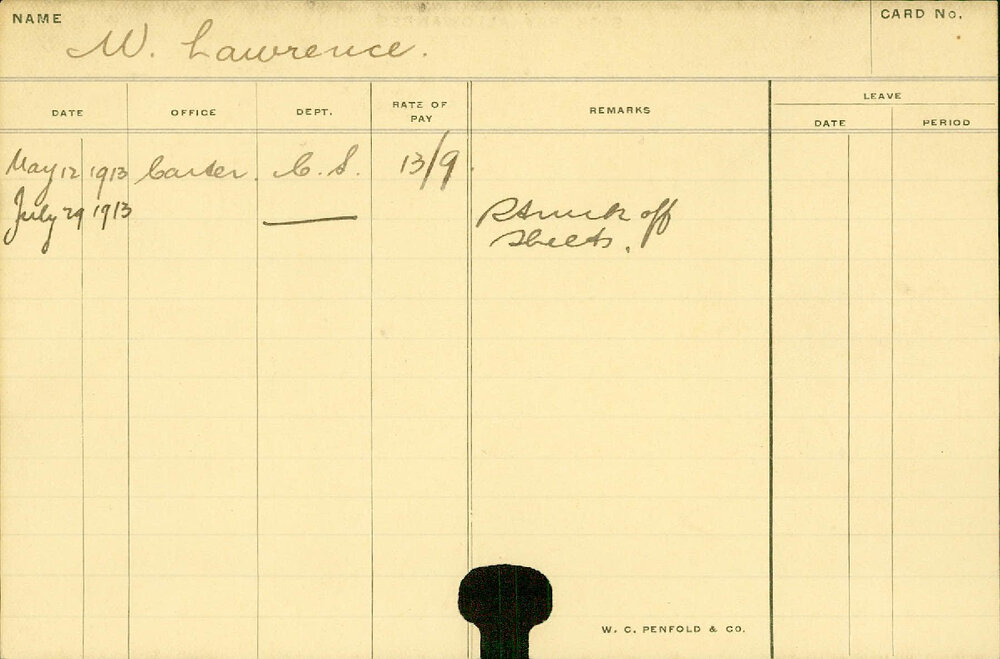 NAME
W. Lawrence.
CARD No.
DATE OFFICE DEPT. RATE OF PAY REMARKS LEAVE
DATE PERIOD
May 12 1913 Carter. C. S. 13/9
July 29 1913 — Struck off
Sheets.
W. C. PENFOLD & CO.